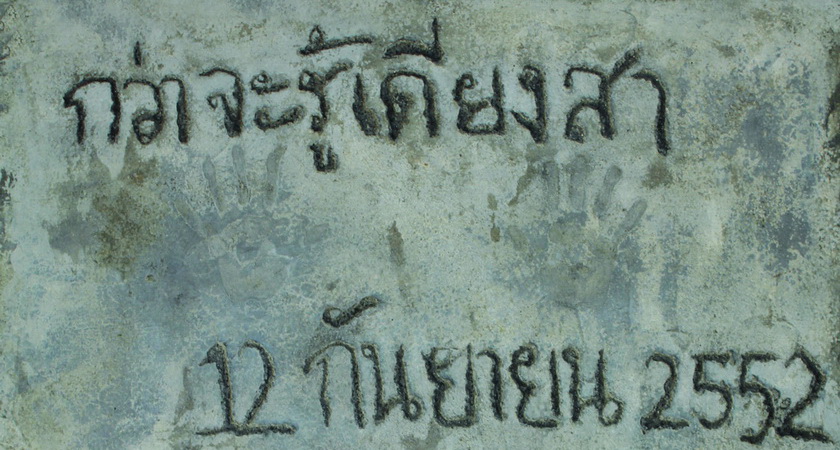 กว่าจะรู้เดียงสา
12 กันยายน 2552